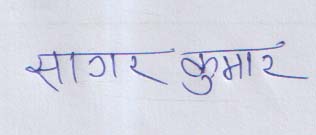 सागर कुमार